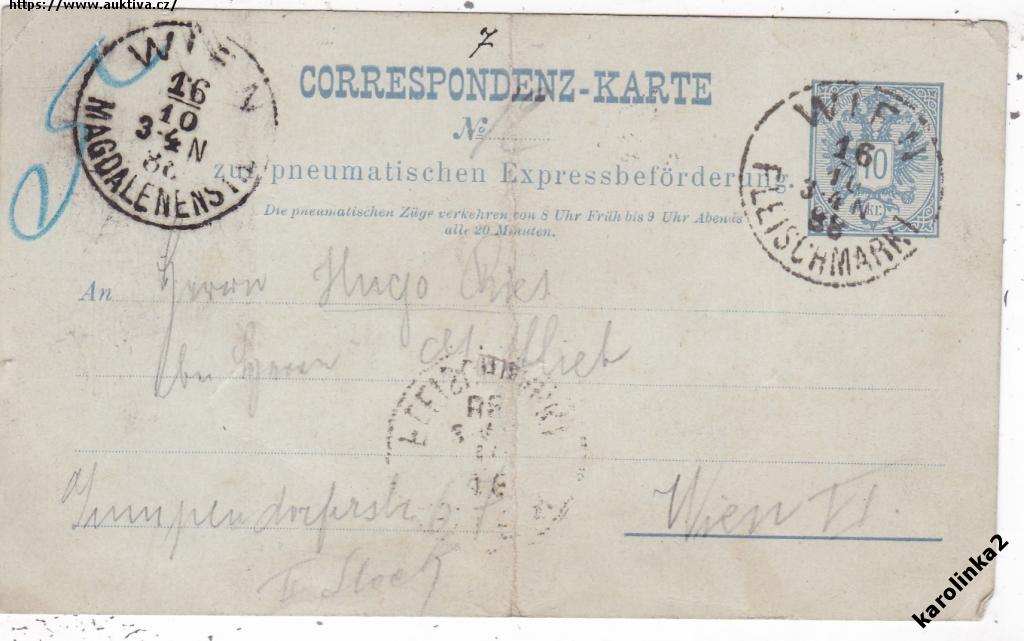 https://www.auktiva.cz/
7
WIEN
16
10
3-4 N
88
MAGDALENENSTR.
CORRESPONDENZ-KARTE
No.
zur pneumatischen Expressbeförderung.
Die pneumatischen Züge verkehren von 8 Uhr Früh bis 9 Uhr Abends
alle 20 Minuten.
10
kr.
WIEN
16
10
3-4 N
88
FLEISCHMARKT
An Herrn Hugo Ries
bei Herrn
FLEISCHMARKT
88
16
Gumpendorferstr 67 Wien VI.
II. Stock
karolinka2